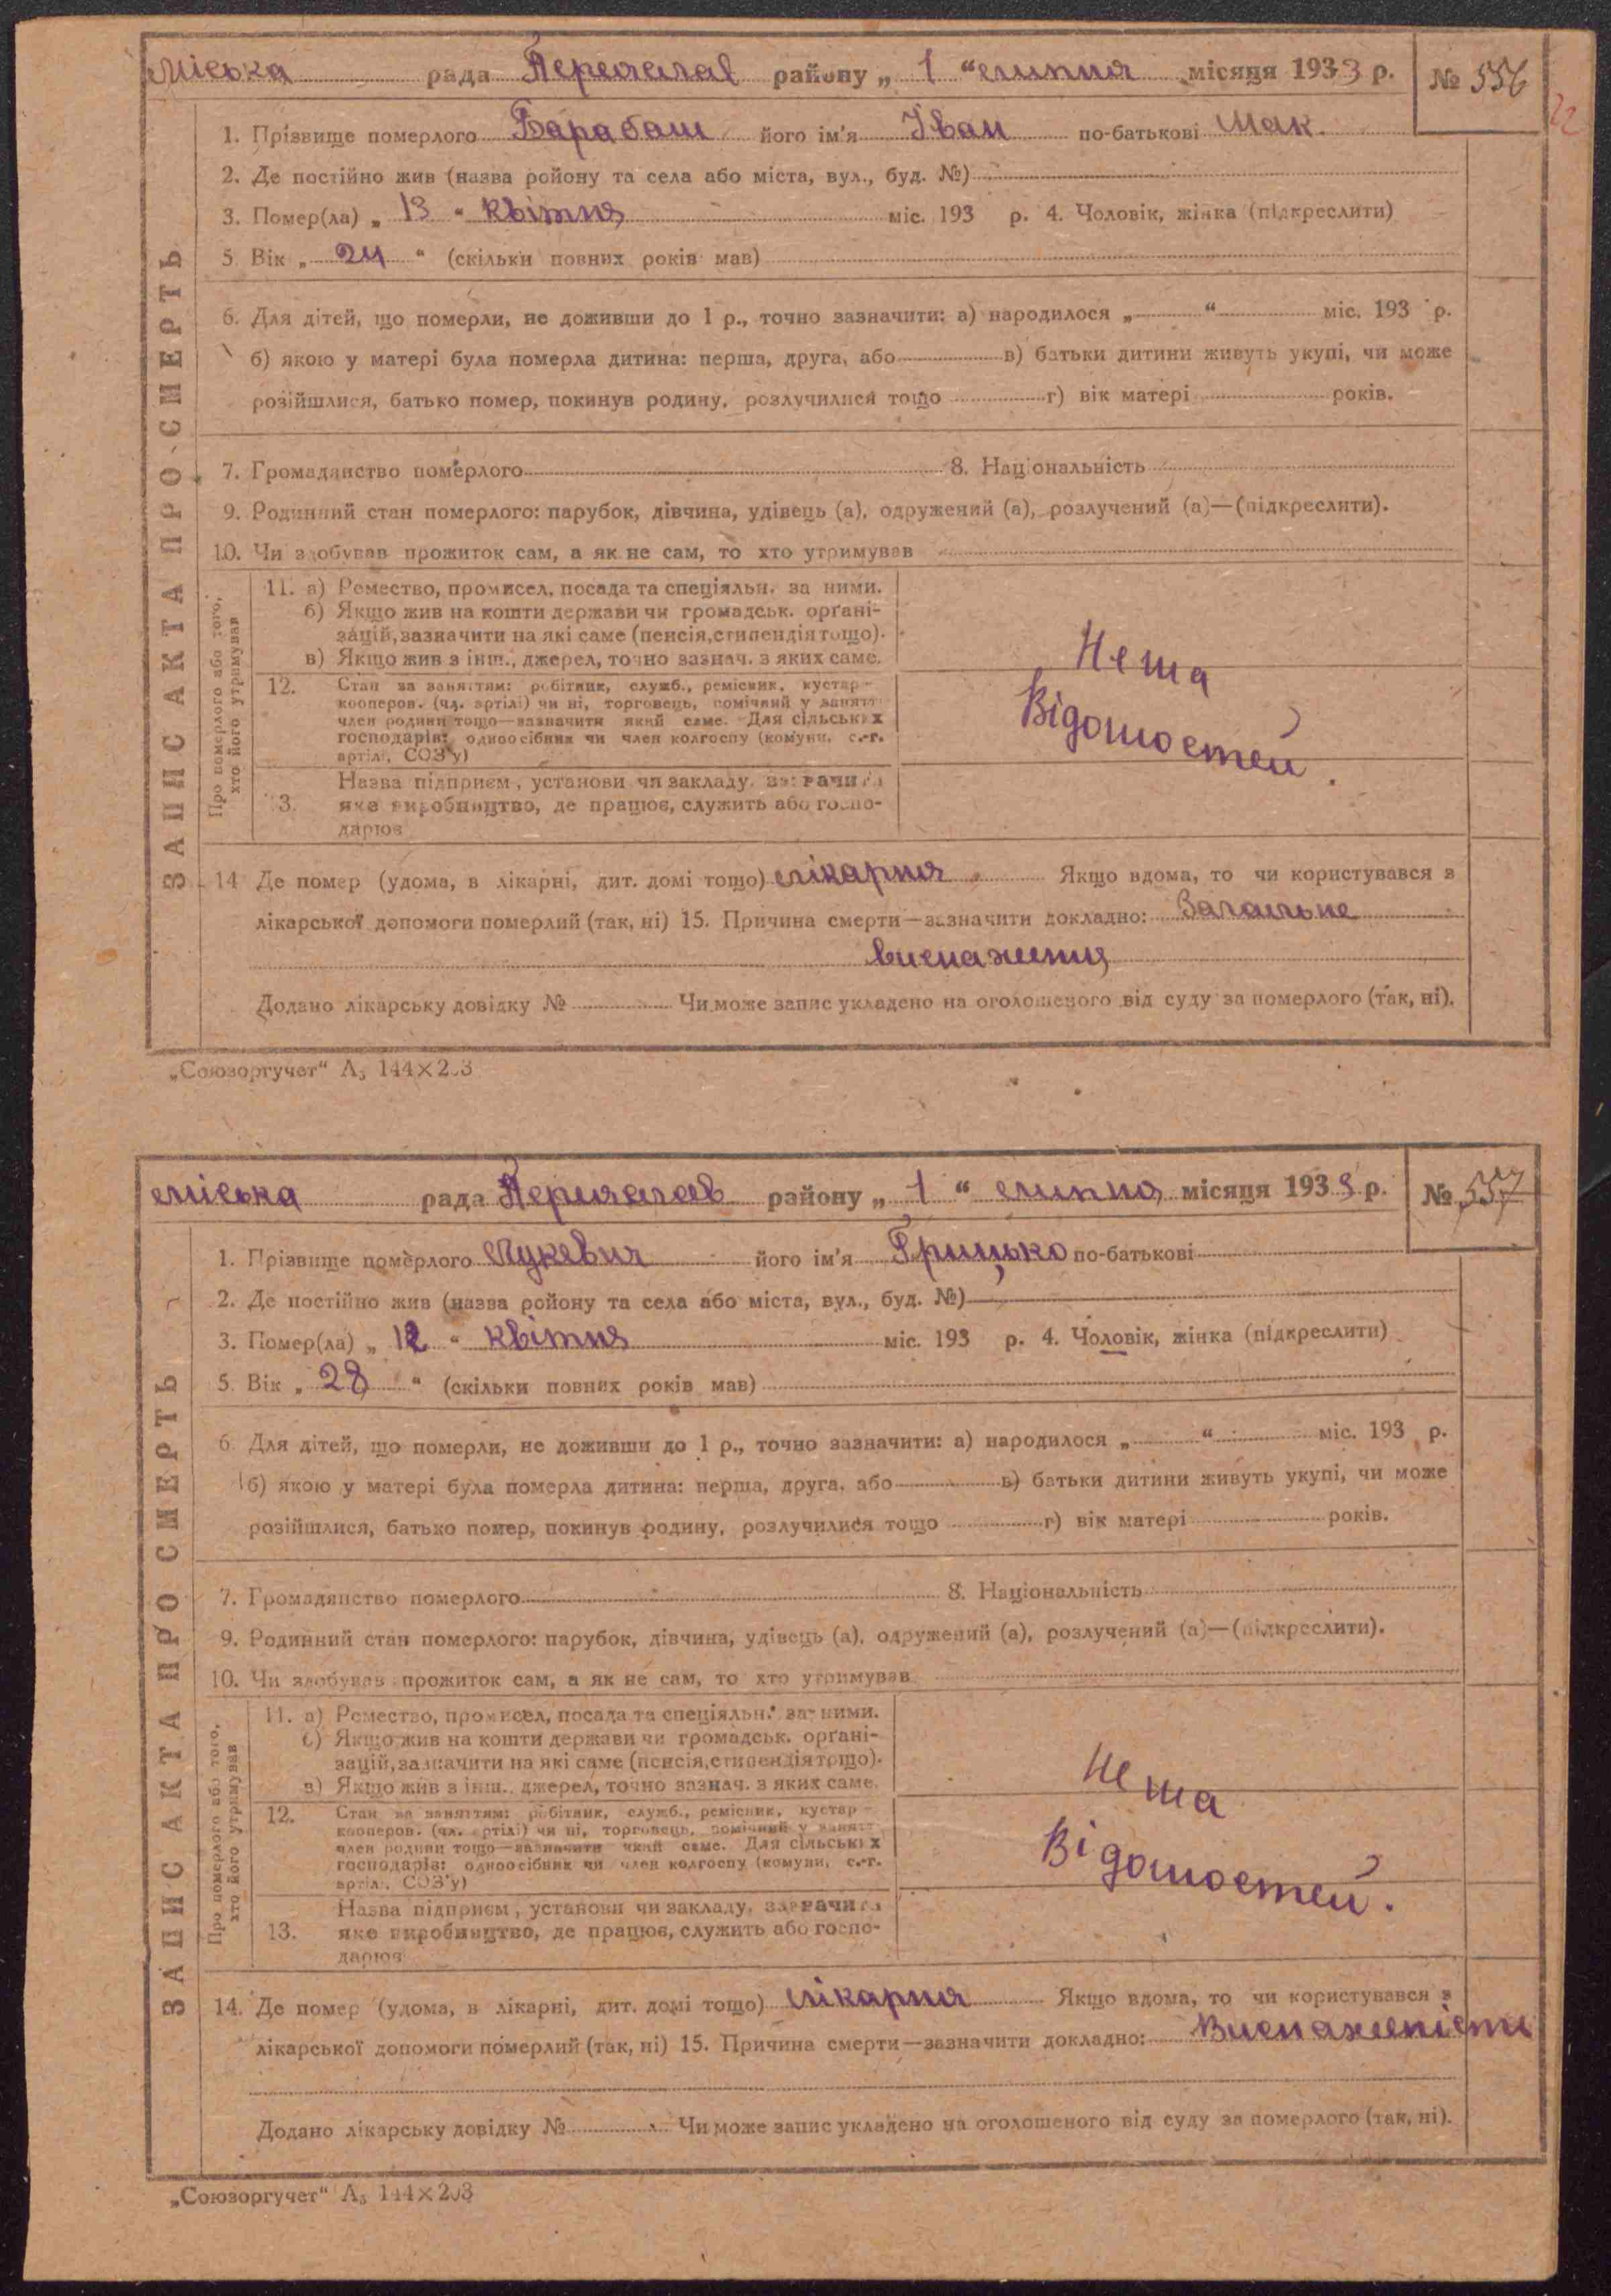 Міська рада Переяслав району „ 1 “ липня місяця 1933 р. № 556
22
1. Прізвище померлого Барабаш його ім'я Іван по-батькові Мак.
2. Де постійно жив (назва ройону та села або міста, вул., буд. №)
3. Помер(ла) „ 13 “ квітня міс. 193 р. 4. Чоловік, жінка (підкреслити)
5. Вік „ 24 “ (скільки повних років мав)
6. Для дітей, що померли, не доживши до 1 р., точно зазначити: а) народилося „ “ міс. 193 р.
б) якою у матері була померла дитина: перша, друга, або в) батьки дитини живуть укупі, чи може
розійшлися, батько помер, покинув родину, розлучилися тощо г) вік матері років.
7. Громадянство померлого 8. Національність
9. Родинний стан померлого: парубок, дівчина, удівець (а), одружений (а), розлучений (а)—(підкреслити).
10. Чи здобував прожиток сам, а як не сам, то хто утримував
ЗАПИС АКТА ПРО СМЕРТЬ
Про померлого або того, хто його утримував
11. а) Ремество, промисел, посада та спеціяльн. за ними.
б) Якщо жив на кошти держави чи громадськ. орґані-
зацій, зазначити на які саме (пенсія, стипендія тощо).
в) Якщо жив з інш., джерел, точно зазнач. з яких саме.
12. Стан за заняттям: робітник, служб., ремісник, кустар-
кооперов. (чл. артілі) чи ні, торговець, помічний у занятт
член родини тощо—зазначити який саме. Для сільських
господарів: одноосібник чи член колгоспу (комуни, с.-г.
артілі, СОЗ'у)
Нема
Відомостей.
13. Назва підприєм, установи чи закладу, зазначити
яке виробництво, де працює, служить або госпо-
дарює
14 Де помер (удома, в лікарні, дит. домі тощо) лікарня Якщо вдома, то чи користувався з
лікарської допомоги померлий (так, ні) 15. Причина смерти—зазначити докладно: Загальне
виснаження
Додано лікарську довідку № Чи може запис укладено на оголошеного від суду за померлого (так, ні).
„Союзоргучет“ А₅ 144×203
міська рада Переяслав району „ 1 “ липня місяця 1933 р. № 557
1. Прізвище померлого Лукевич його ім'я Грицько по-батькові
2. Де постійно жив (назва ройону та села або міста, вул., буд. №)
3. Помер(ла) „ 12 “ квітня міс. 193 р. 4. Чоловік, жінка (підкреслити)
5. Вік „ 28 “ (скільки повних років мав)
6. Для дітей, що померли, не доживши до 1 р., точно зазначити: а) народилося „ “ міс. 193 р.
б) якою у матері була померла дитина: перша, друга, або в) батьки дитини живуть укупі, чи може
розійшлися, батько помер, покинув родину, розлучилися тощо г) вік матері років.
7. Громадянство померлого 8. Національність
9. Родинний стан померлого: парубок, дівчина, удівець (а), одружений (а), розлучений (а)—(підкреслити).
10. Чи здобував прожиток сам, а як не сам, то хто утримував
ЗАПИС АКТА ПРО СМЕРТЬ
Про померлого або того, хто його утримував
11. а) Ремество, промисел, посада та спеціяльн. за ними.
б) Якщо жив на кошти держави чи громадськ. орґані-
зацій, зазначити на які саме (пенсія, стипендія тощо).
в) Якщо жив з інш., джерел, точно зазнач. з яких саме.
12. Стан за заняттям: робітник, служб., ремісник, кустар-
кооперов. (чл. артілі) чи ні, торговець, помічний у занятт
член родини тощо—зазначити який саме. Для сільських
господарів: одноосібник чи член колгоспу (комуни, с.-г.
артілі, СОЗ'у)
Нема
Відомостей.
13. Назва підприєм, установи чи закладу, зазначити
яке виробництво, де працює, служить або госпо-
дарює
14. Де помер (удома, в лікарні, дит. домі тощо) лікарня Якщо вдома, то чи користувався з
лікарської допомоги померлий (так, ні) 15. Причина смерти—зазначити докладно: Виснаженість
Додано лікарську довідку № Чи може запис укладено на оголошеного від суду за померлого (так, ні).
„Союзоргучет“ А₅ 144×203